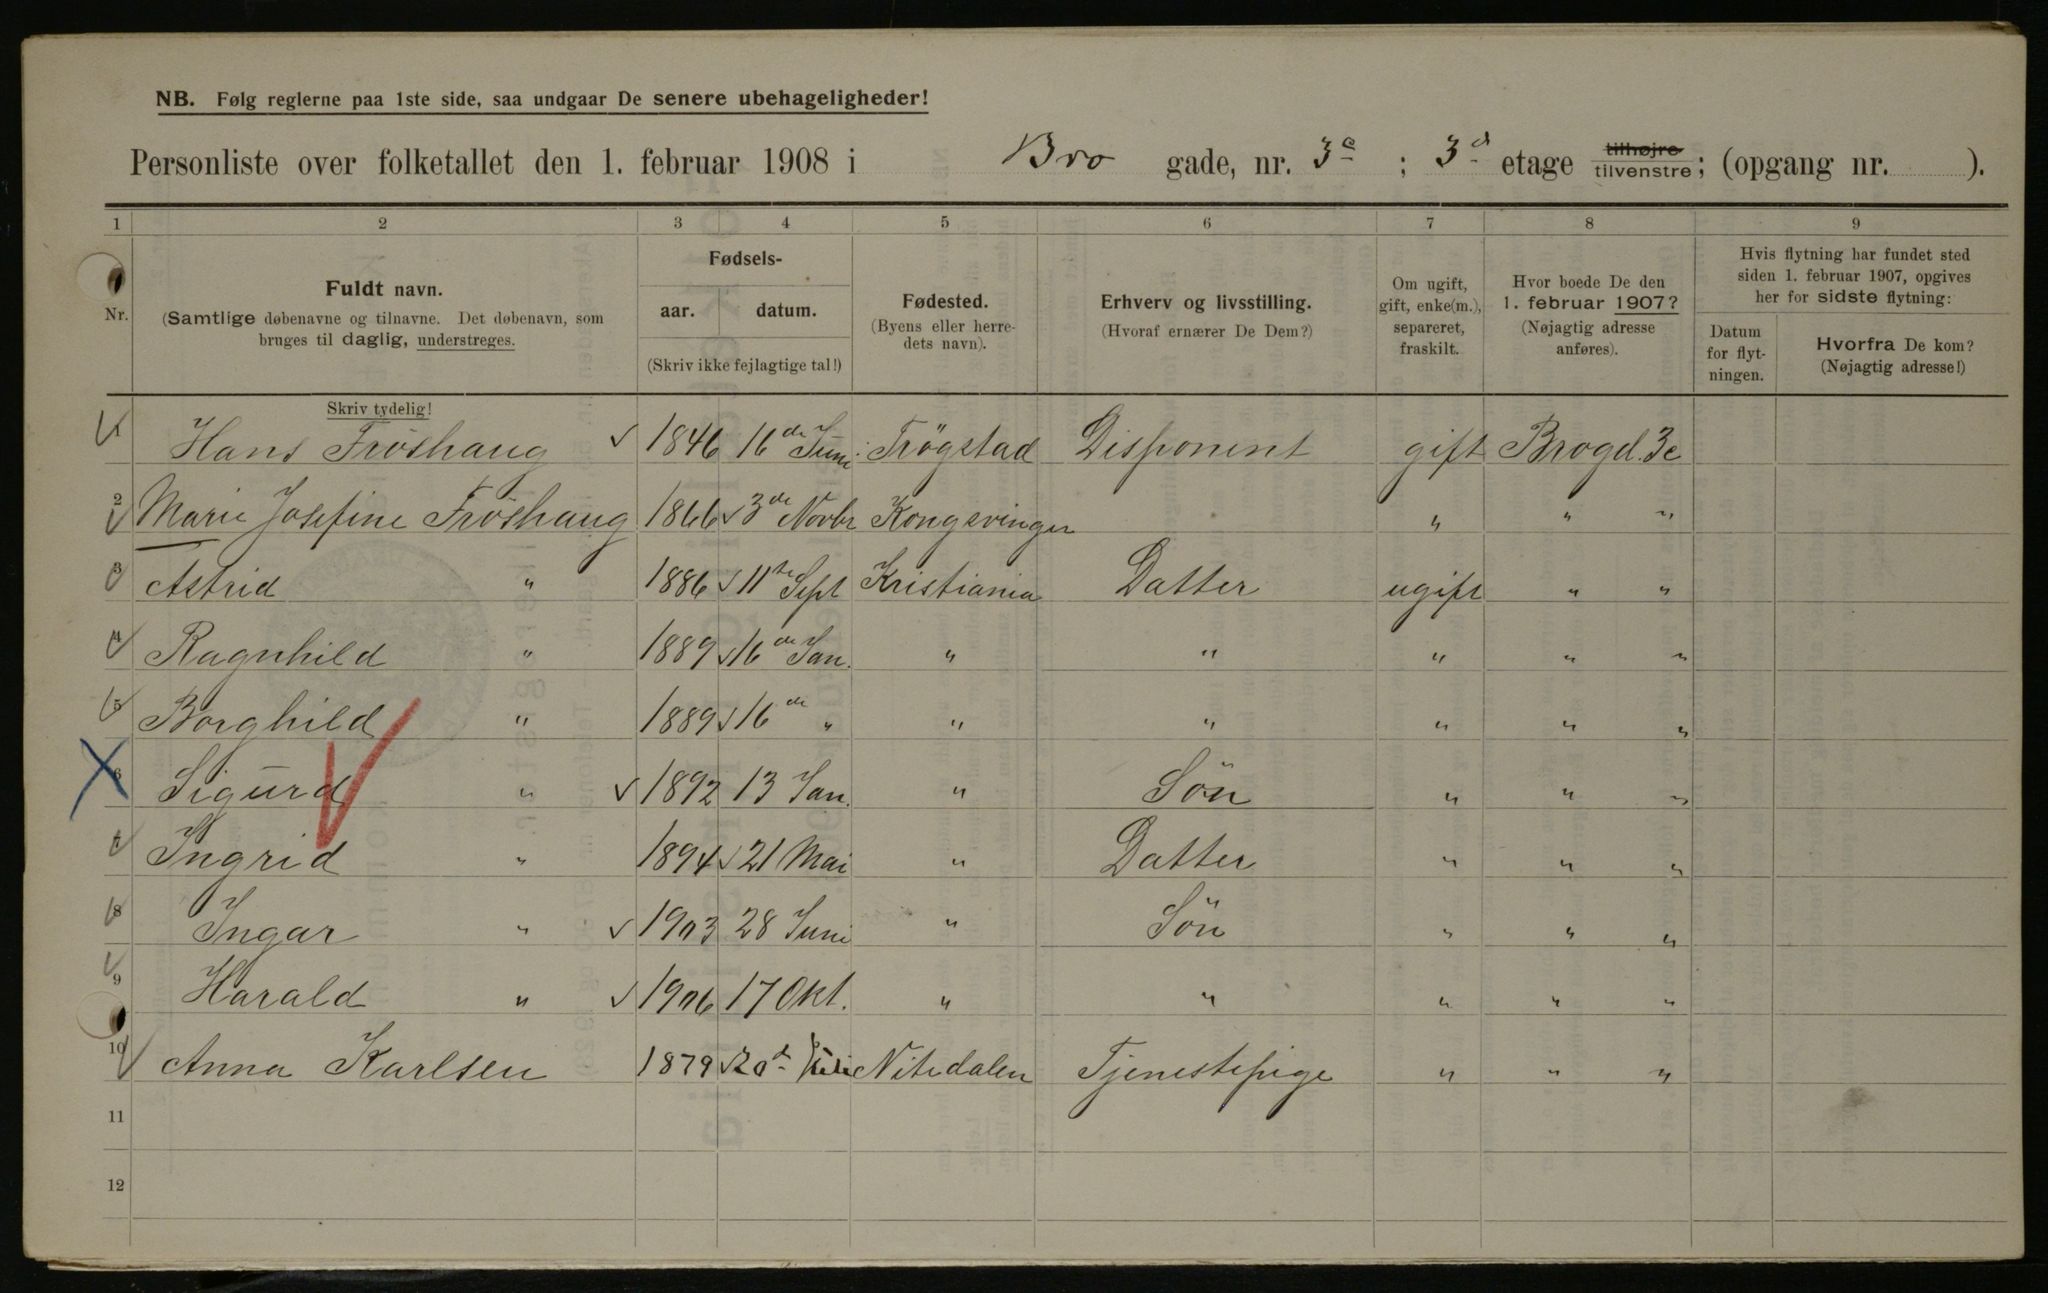 NB. Følg reglerne paa 1ste side, saa undgaar De senere ubehageligheder!
Personliste over folketallet den 1. februar 1908 i Bro gade, nr. 3c ; 3d etage tilhøjre tilvenstre; (opgang nr. ).
1 2 3 4 5 6 7 8 9
Nr. Fuldt navn. (Samtlige døbenavne og tilnavne. Det døbenavn, som bruges til daglig, understreges.
Fødsels- aar. datum. (Skriv ikke fejlagtige tal!)
Fødested. (Byens eller herredets navn).
Erhverv og livsstilling. (Hvoraf ernærer De Dem?)
Om ugift, gift, enke(m.), separeret, fraskilt.
Hvor boede De den 1. februar 1907? (Nøjagtig adresse anføres).
Hvis flytning har fundet sted siden 1. februar 1907, opgives her for sidste flytning:
Datum for flytningen. Hvorfra De kom? (Nøjagtig adresse!)
Skriv tydelig!
1 Hans Fröshaug 1846 16de Juni Trögstad Disponent gift Brogd. 3c
2 Marie Josefine Fröshaug 1866 3de Novbr Kongsvinger " " "
3 Astrid " 1886 11te Sept Kristiania Datter ugift " "
4 Ragnhild " 1889 16de Jan. " " " " "
5 Borghild " 1889 16de " " " " " "
6 Sigurd " 1892 13 Jan. " Sön " " "
7 Ingrid " 1894 21 Mai " Datter " " "
8 Ingar " 1903 28 Juni " Sön " " "
9 Harald " 1906 17 Okt. " " " " "
10 Anna Karlsen 1879 20d Nitedalen Tjenestepige " " "
11
12